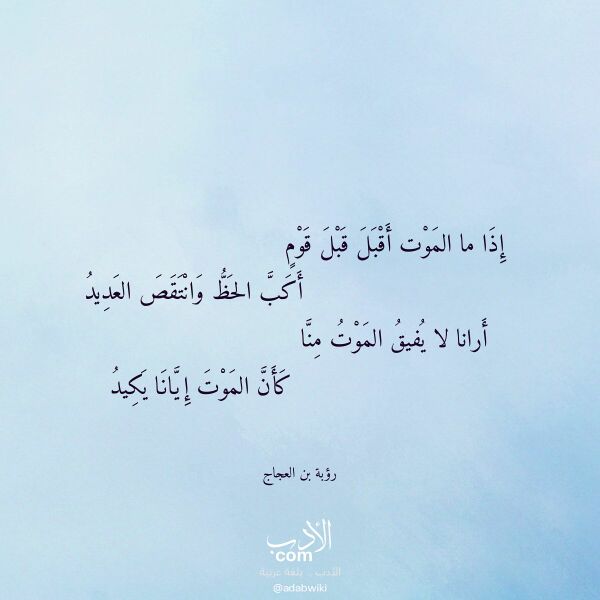 إِذَا ما المَوْت أَقْبَلَ قَبْلَ قَوْمٍ
أَكَبَّ الحَظُّ وَانْتَقَصَ العَدِيدُ
أَرانا لا يُفيقُ المَوْتُ مِنَّا
كَأَنَّ المَوْتَ إِيَّانَا يَكِيدُ
رؤبة بن العجاج
الأدب
com
الأدب .. بلغة عربية
@adabwiki